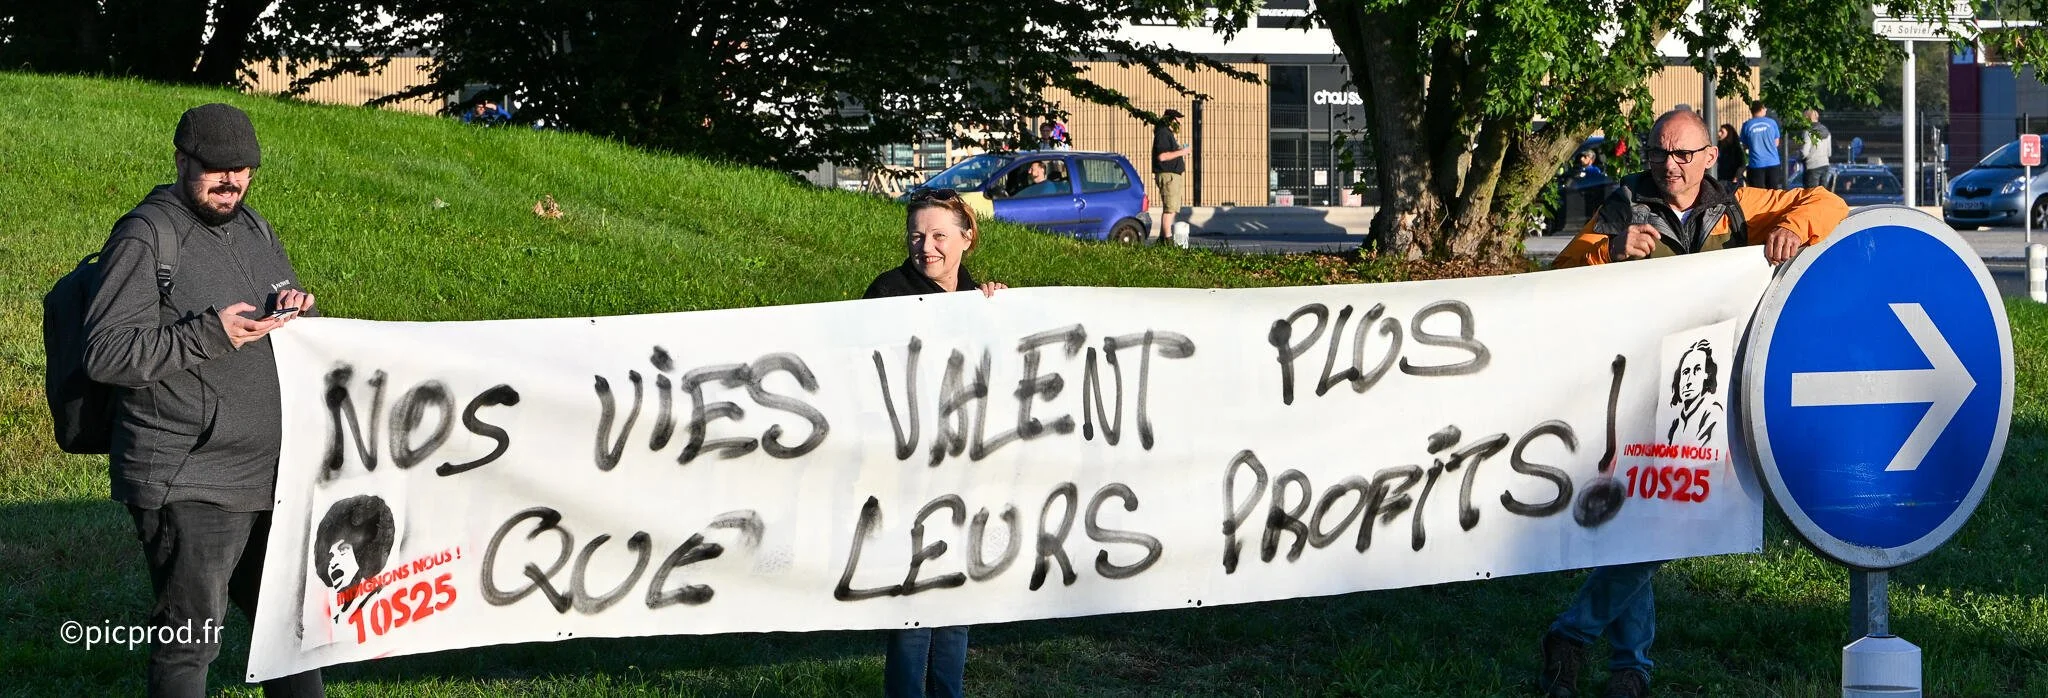 ZA Solvier
chauss
NOS ViES VALENT PLUS
QUE LEURS PROFiTS !
INDIGNONS NOUS !
10S25
INDIGNONS NOUS !
10S25
©picprod.fr